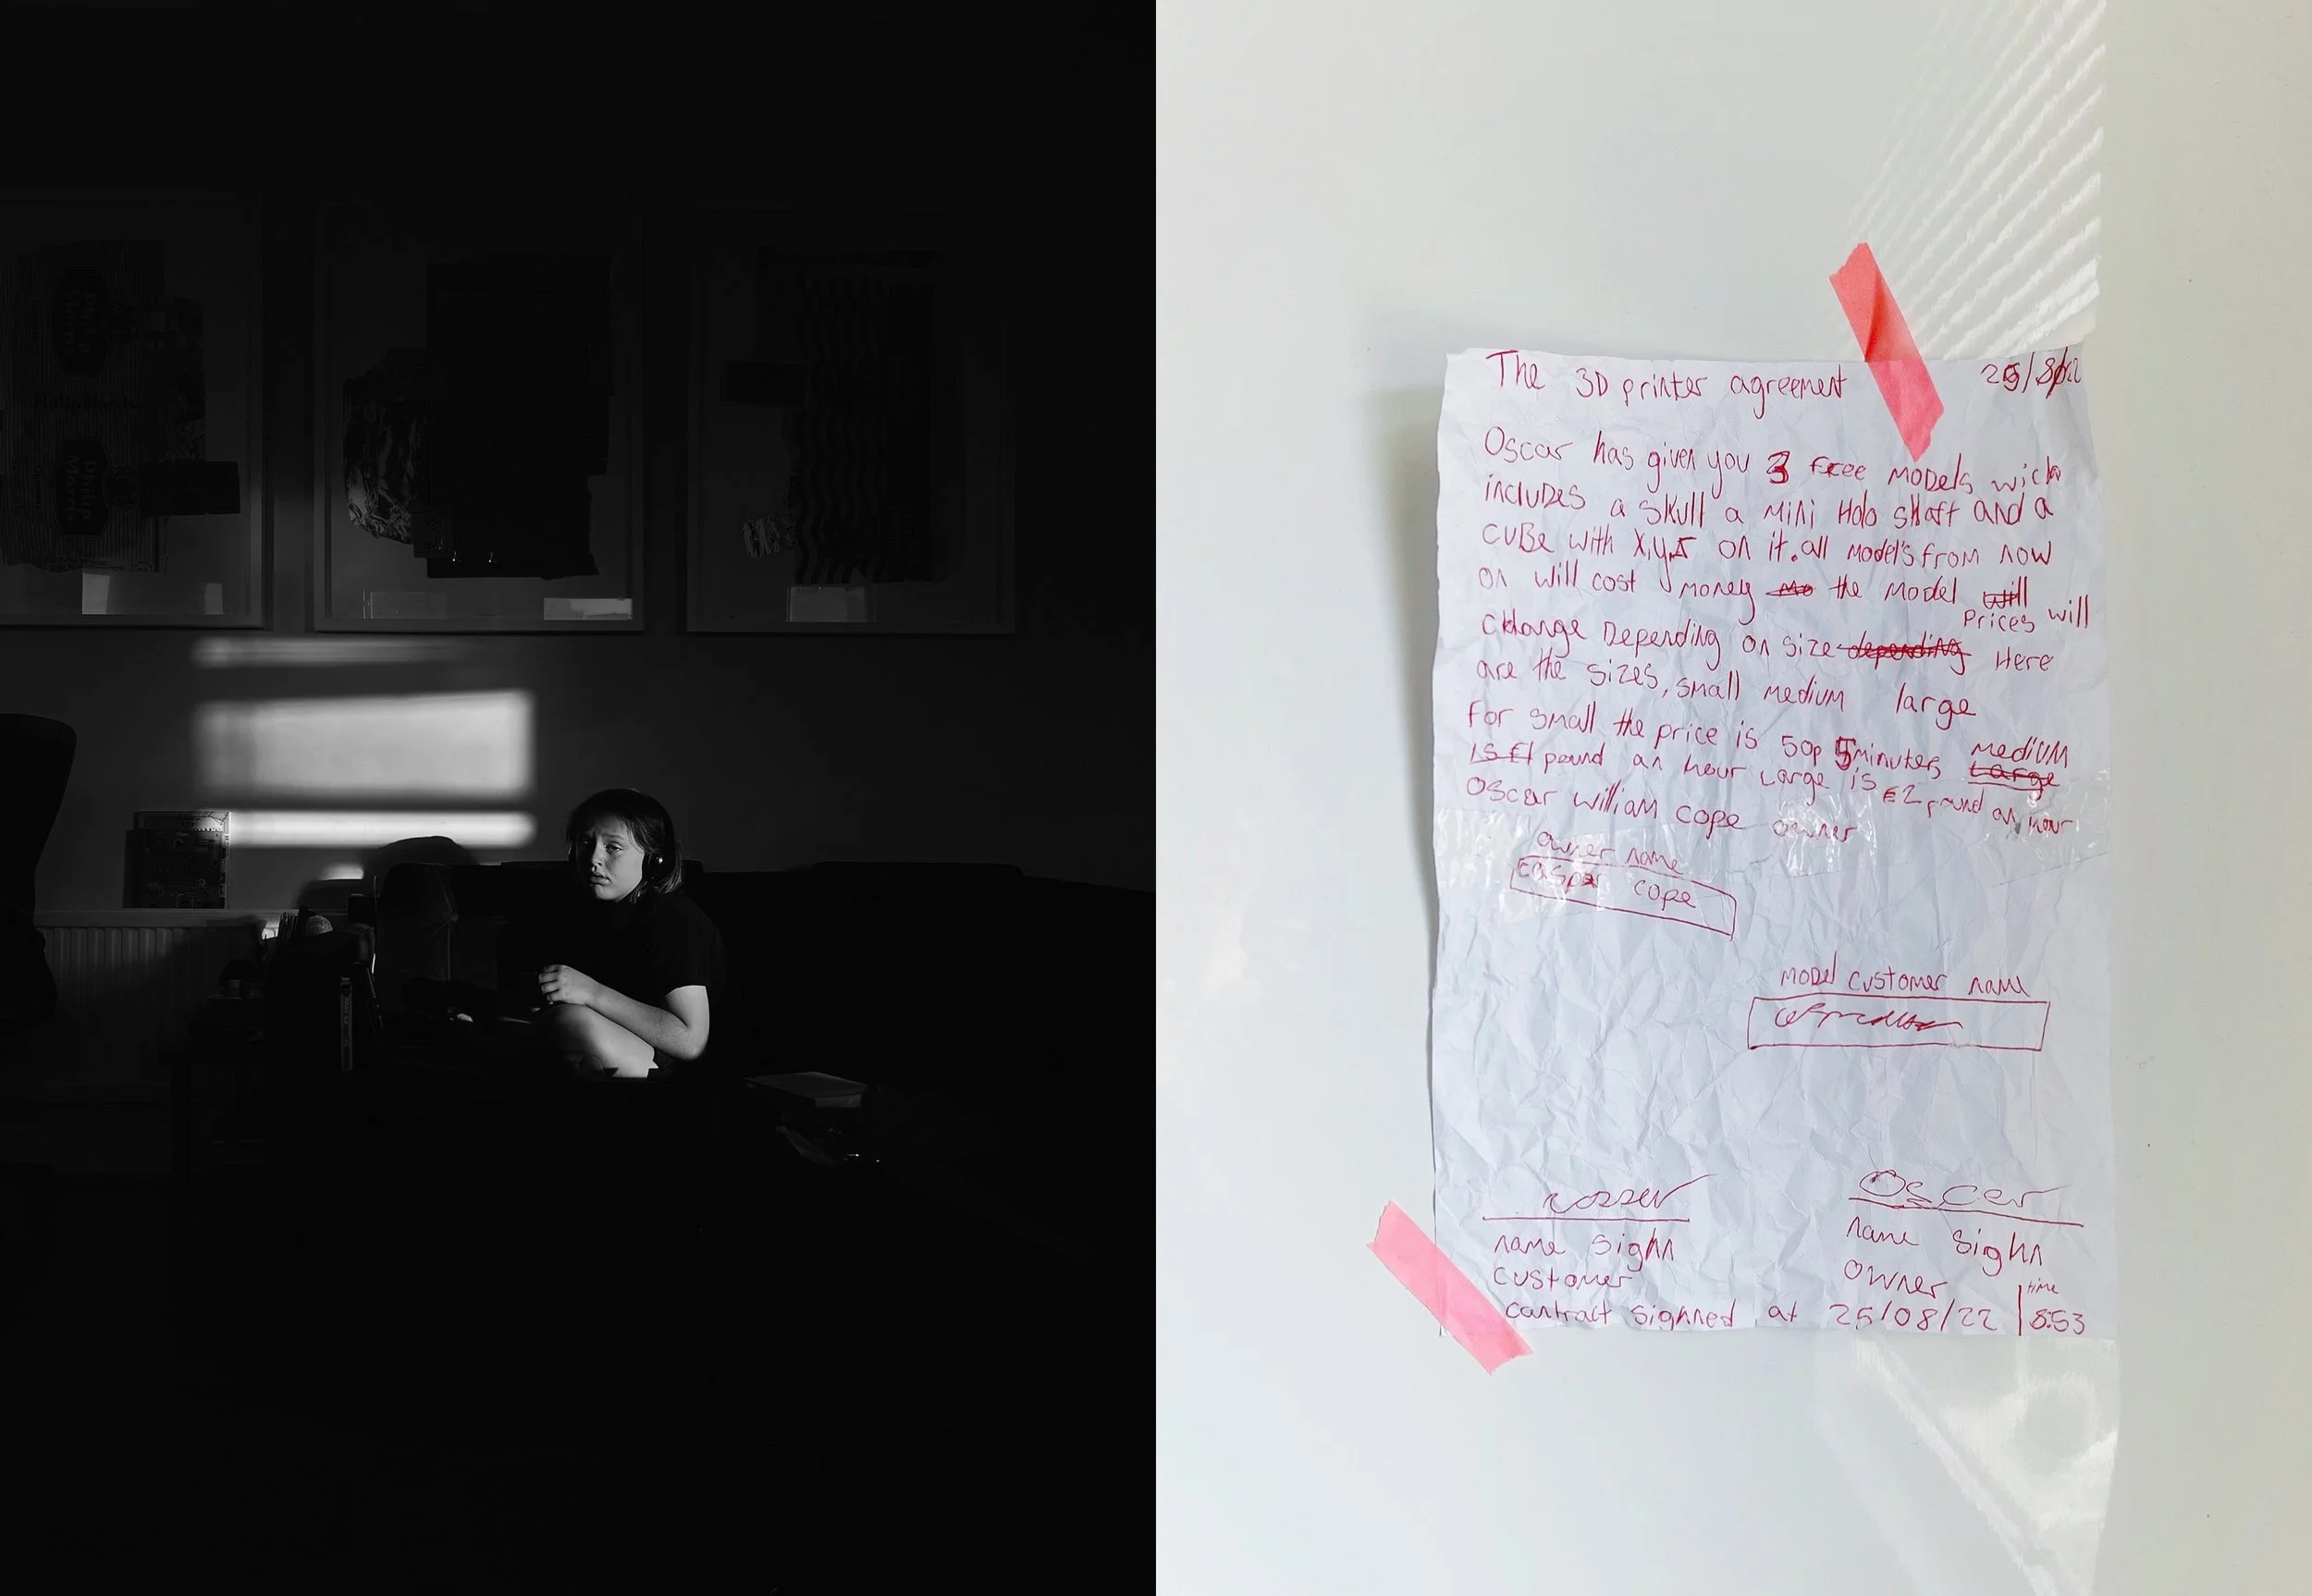 Philip
Morris
Philip Morris
Philip
Morris
The 3D printer agreement
Oscar has given you 3 free MODELS wich
incluDes a skull a Mini Holo shaft and a
CUBe with X,y,z on it. all Model's from now
on will cost money the Model
Prices will
change Depending on size depending Here
are the sizes, small medium large
For small the price is 50p 5minutes medium
is £1 pound an hour Large is £2 pound an hour
Oscar william cope owner
owner name
cope
MODel customer name
Oscar
name sighn
customer
name sighn
owner
time
contract sighned at 25/08/22 8:53